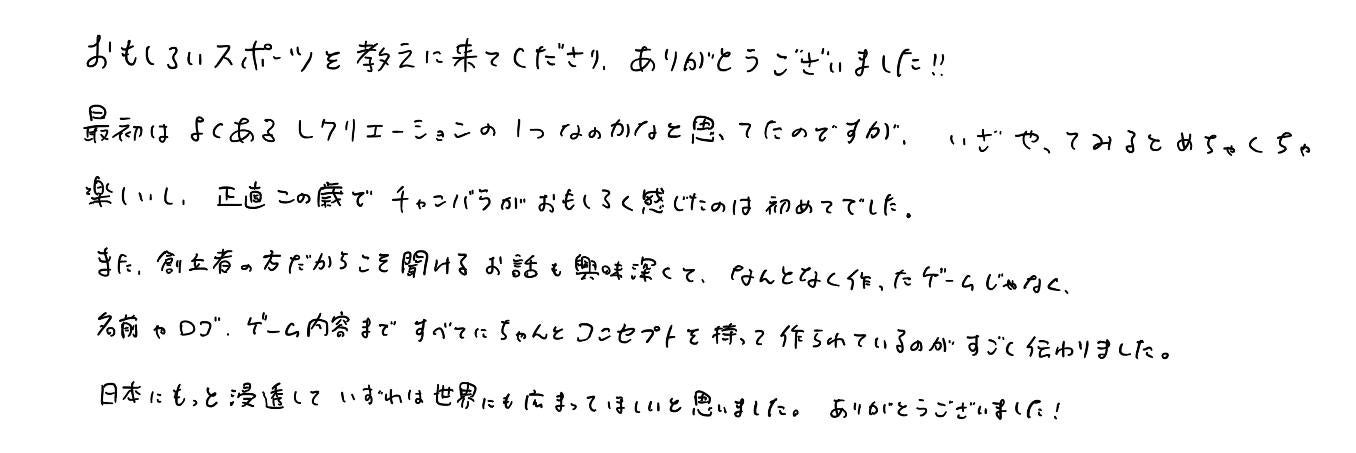 おもしろいスポーツを教えに来てくださり、ありがとうございました!!
最初はよくあるレクリエーションの1つなのかなと思ってたのですが、いざやってみるとめちゃくちゃ
楽しいし、正直この歳でチャンバラがおもしろく感じたのは初めてでした。
また、創立者の方だからこそ聞けるお話も興味深くて、なんとなく作ったゲームじゃなく、
名前やロゴ、ゲーム内容まですべてにちゃんとコンセプトを持って作られているのがすごく伝わりました。
日本にもっと浸透していずれは世界にも広まってほしいと思いました。ありがとうございました!